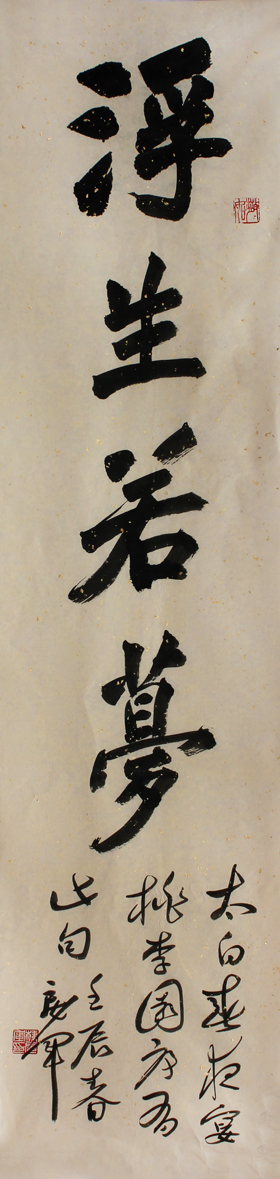 浮生若夢
太白春夜宴
桃李園序有
此句 壬辰春